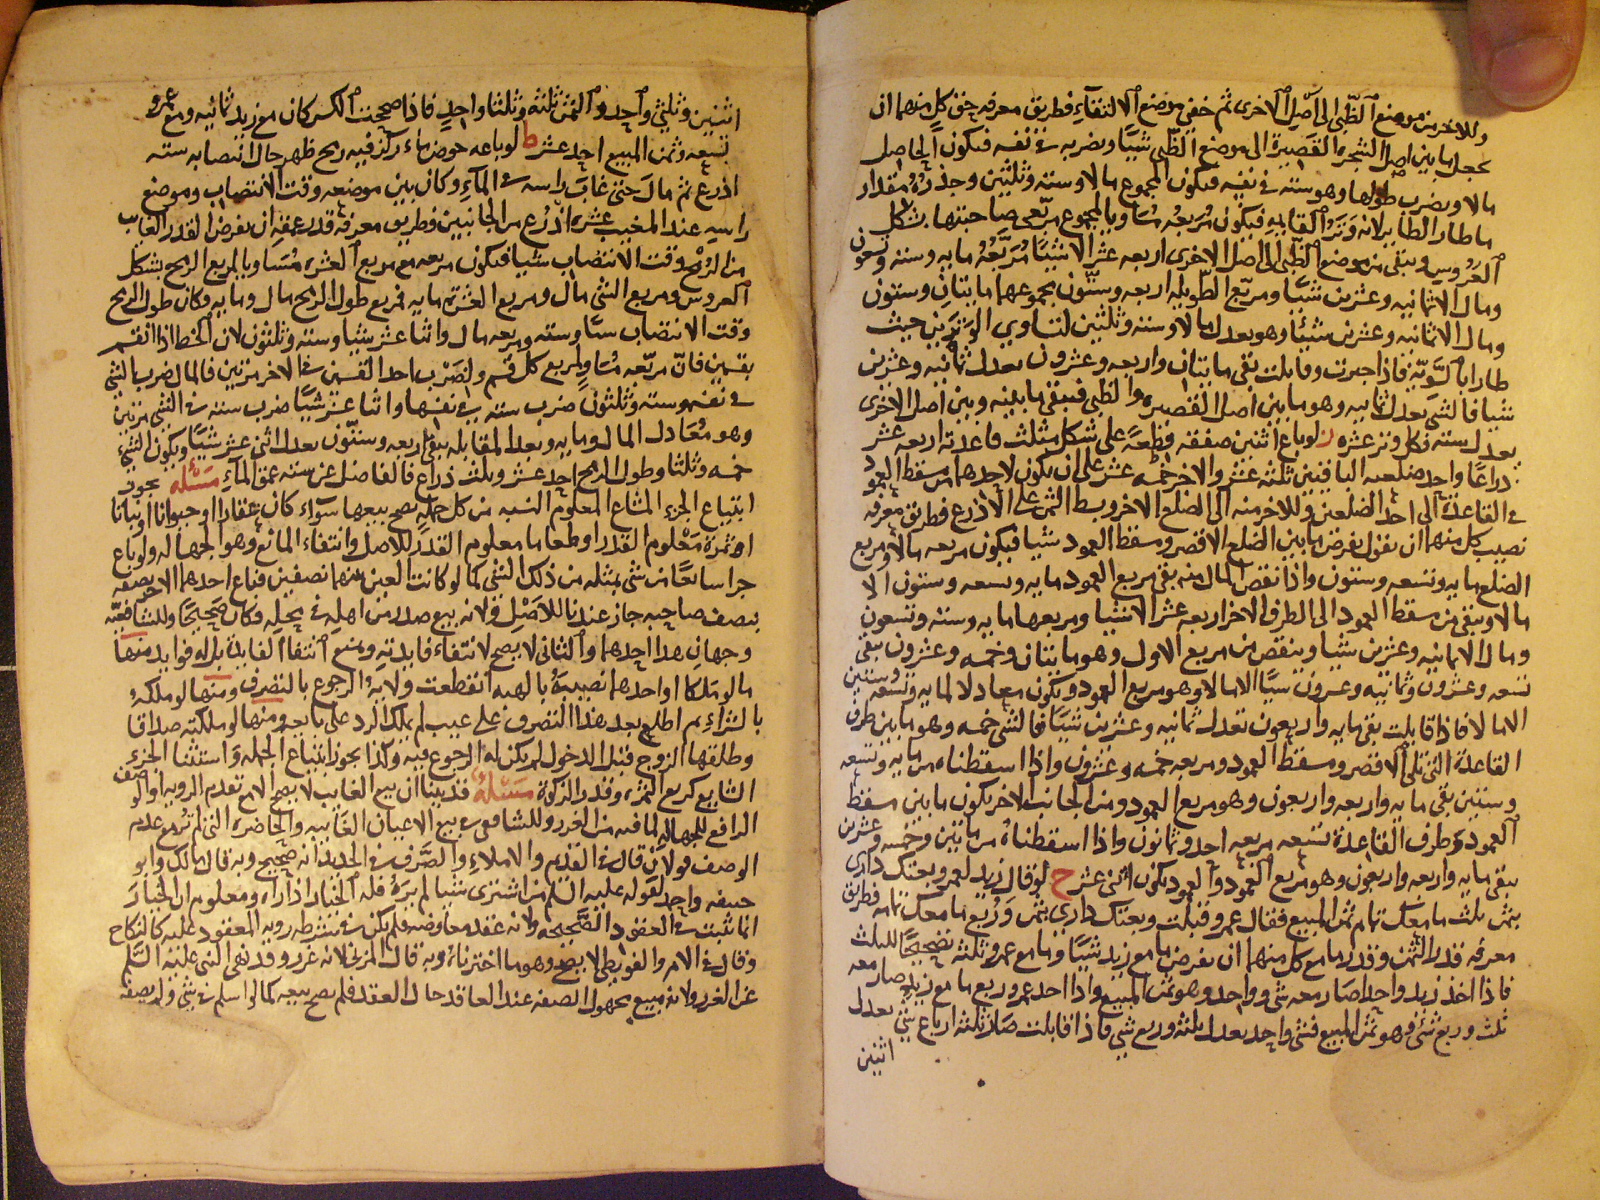 وللاخر من موضع الظبي الى اصل الاخرى ثم خفي موضع الالتقاء فطريق معرفه حق كل منهما ان
يجعل ما بين اصل الشجرة القصيرة الى موضع الظبي شيئا ويضربه في نفسه فيكون الحاصل
مالا ويضرب طولها وهو سته في نفسه فيكون المجموع مالا وستة وثلثين وجذره مقدار
ما طار الطاير لانه وتر القايمه فيكون مربعه مساويا لمجموع مربعي صاحبتها بشكل
العروس ويبقى من موضع الظبي الى اصل الاخرى اربعه عشر الا شيئا مربعه مايه وسته وتسعون
ومال الا ثمانيه وعشرين شيئا ومربع الطويله اربعه وستون مجموعهما مايتان وستون
ومال الا ثمانيه وعشرين شيئا وهو يعدل مالا وسته وثلثين لتساوي الوترين حيث
طارا بالسويه فاذا جبرت وقابلت بقى مايتان واربعه وعشرون يعدل ثمانيه وعشرين
شيئا فالشي يعدل ثمانيه وهو ما بين اصل القصيره والظبي فيبقى ما بينه وبين اصل الاخرى
يعدل سته فكل وتر عشره ز لو باع اثنين صفقه قطعة على شكل مثلث قاعدته اربعه عشر
ذراعا واحد ضلعيه الباقيين ثلثه عشر والاخر خمسه عشر على ان يكون لاحدهما من مسقط العمود
في القاعدة الى احد الضلعين وللاخر منه الى الضلع الاخر وبسط الثمن على الاذرع فطريق معرفه
نصيب كل منهما ان نقول نفرض ما بين الضلع الاقصر ومسقط العمود شيئا فيكون مربعه مالا ومربع
الضلع مايه وتسعه وستون واذا نقص المال منه بقى مربع العمود مايه وتسعه وستون الا
مالا ويبقى من مسقط العمود الى الطرف الاخر اربعه عشر الا شيئا ومربعها مايه وسته وتسعون
ومال الا ثمانيه وعشرين شيئا وينقص من مربع الاول وهو مايتان وخمسه وعشرون يبقى
تسعه وعشرون وثمانيه وعشرون شيئا الا مالا وهو مربع العمود ويكون معادلا لمايه وتسعه وستين
الا مالا فاذا قابلت بقى مايه واربعون تعدل ثمانيه وعشرين شيئا فالشي خمسه وهو ما بين طرف
القاعدة التي تلي الاقصر ومسقط العمود ومربعه خمسه وعشرون واذا اسقطناه من مايه وتسعه
وستين بقى مايه واربعه واربعون وهو مربع العمود ومن الجانب الاخر يكون ما بين مسقط
العمود وطرف القاعدة تسعه مربعه احد وثمانون واذا اسقطناه من مايتين وخمسه وعشرين
يبقى مايه واربعه واربعون وهو مربع العمود والعمود يكون اثنى عشر ح لو قال زيد لعمرو بعتك داري
بثمن ثلث ما معك تمام ثمن المبيع فقال عمرو قبلت وبعتك داري بثمن وربع ما معك تمامه فطريق
معرفه قدر الثمن وقدر ما مع كل منهما ان نفرض ما مع زيد شيئا وما مع عمرو ثلثه تصحيحا للثلث
فاذا اخذ زيد واحدا صار معه شي وواحد وهو ثمن المبيع واذا اخذ عمرو ربع ما مع زيد صار معه
ثلث وربع شي وهو ثمن المبيع فشي وواحد يعدل ثلثه وربع شي فاذا قابلت صار ثلثه ارباع شي يعدل
اثنين
اثنين وثلثي واحد والثمن ثلثه وثلثا واحد فاذا صححت الكسر كان مع زيد ثمانيه ومع عمرو
تسعه وثمن المبيع احد عشر ط لو باعه حوض ماء ركز فيه رمح ظهر حال انتصابه سته
اذرع ثم مال حتى غاب راسه في الماء وكان بين موضعه وقت الانتصاب وموضع
راسه عند المغيب عشره اذرع من الجانبين فطريق معرفه قدر عمقه ان نفرض القدر الغايب
من الرمح وقت الانتصاب شيئا فيكون مربعه مع مربع العشره مساويا لمربع الرمح بشكل
العروس ومربع الشي مال ومربع العشرة مايه فمربع طول الرمح مال ومايه وكان طول الرمح
وقت الانتصاب شيئا وسته ومربعه مال واثنا عشر شيئا وسته وثلثون لان الخط اذا انقسم
بقسمين فان مربعه مساو لمربع كل قسم ولضرب احد القسمين في الاخر مرتين فالمال ضرب الشي
في نفسه وسته وثلثون ضرب سته في نفسها واثنا عشر شيئا ضرب سته في الشي مرتين
وهو معادل المال ومايه وبعد المقابله يبقى اربعه وستون يعدل اثنى عشر شيئا ويكون الشي
خمسه وثلثا وطول الرمح احد عشر وثلث ذراع فالفاضل عن سته عمق الماء مسئله يجوز
ابتياع الجزء المشاع المعلوم النسبه من كل جمله يصح بيعها سواء كان عقارا او حيوانا او نباتا
او ثمرة معلوم القدر او طعاما معلوم القدر للاصل وانتفاء المانع وهو الجهاله ولو باع
جزا شايعا من شي بمثله من ذلك الشي كما لو كانت العين بينهما نصفين فباع احدهما الاخر نصفه
بنصف صاحبه جاز عندنا للاصل ولانه بيع صدر من اهله في محله فكان صحيحا وللشافعيه
وجهان هذا احدهما والثاني لا يصح لانتفاء فايدته ومنع انتفا الفايدة بل له فوايد منها
ما لو ملكا او احدهما نصيبه بالهبه انقطعت ولاية الرجوع بالتصرف ومنها لو ملكه
بالشراء ثم اطلع بعد هذا التصرف على عيب لم يملك الرد على بايعه ومنها لو ملكته صداقا
وطلقها الزوج قبل الدخول لم يكن له الرجوع فيه وكذا يجوز ابتياع الجمله واستثنا الجزء
الشايع كربع الثمن وقدر الزكوة مسئله قد بينا ان بيع الغايب لا يصح الا مع تقدم الرويه او الوصف
الرافع للجهاله لما فيه من الغرر وللشافعي في بيع الاعيان الغايبه والحاضرة التي لم تر مع عدم
الوصف قولان قال في القديم والاملاء والصرف في الجديد انه صحيح وبه قال مالك وابو
حنيفه واحمد لقوله عليه السلم من اشترى شيئا لم يره فله الخيار اذا راه ومعلوم ان الخيار
انما ثبت في العقود الصحيحه ولانه عقد معاوضه فلم يكن من شرطه رويه المعقود عليه كالنكاح
وقال في الام والبويطي لا يصح وهو ما اخترناه وبه قال المزني لانه غرر وقد نهى النبي عليه السلم
عن الغرر ولانه مبيع مجهول الصفه عند العاقد حال العقد فلم يصح بيعه كما لو اسلم في شي ولم يصفه